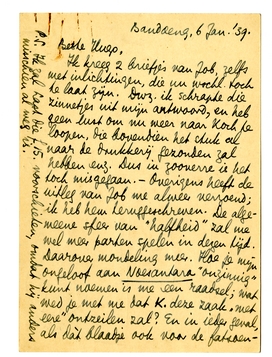 Bandoeng, 6 Jan. '39.
Beste Hugo,
Ik kreeg 2 briefjes van Job, zelfs
met inlichtingen, die nu wschl. toch
te laat zijn. Dwz. ik schrapte die
zinnetjes uit mijn antwoord, en heb
geen lust om nu meer naar Koch te
loopen, die bovendien het stuk al
naar de drukkerij gezonden zal
hebben enz. Dus in zooverre is het
toch misgegaan. – Overigens heeft de
uitleg van Job me alweer vermoeid;
ik heb hem teruggeschreven. De alge-
meene sfeer van "halfheid" zal me
wel meer parten spelen in dezen tijd.
Daarover mondeling meer. Hoe je mijn
ongeloof aan Noesantara "onzinnig"
kunt noemen is me een raadsel; wat
wed je met me dat K. deze zaak "met
eere" ontzeilen zal? En in ieder geval,
als dat blaadje ook voor de fatsoen-
P.S. Ik zal Kask die f 15. voorschieten, omdat hij anders
misschien al weg is.